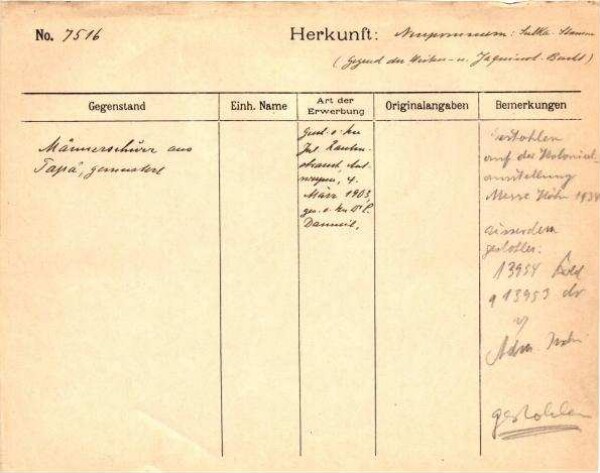 No. 7516
Herkunft: Neupommern: Sulka-Stamm
(Gegend der Weiten- u. Jaquinot-Bucht)
Gegenstand
Einh. Name
Art der
Erwerbung
Originalangaben
Bemerkungen
Männerschürz aus
Tapa, gemustert
Gesch. v. Hn
Jul. Rauten-
strauch, Ant-
werpen, 4.
März 1903,
ges. v. Hn Dr
Danneil.
Gestohlen
auf der Kolonial-
ausstellung
Messe Köln 1934
ausserdem
gestohlen
13954
13953
gestohlen